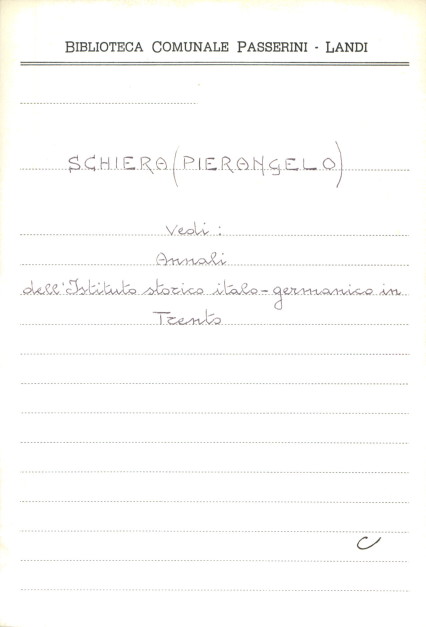 BIBLIOTECA COMUNALE PASSERINI - LANDI
SCHIERA (PIERANGELO)
Vedi :
Annali
dell'Istituto storico italo-germanico in
Trento
C